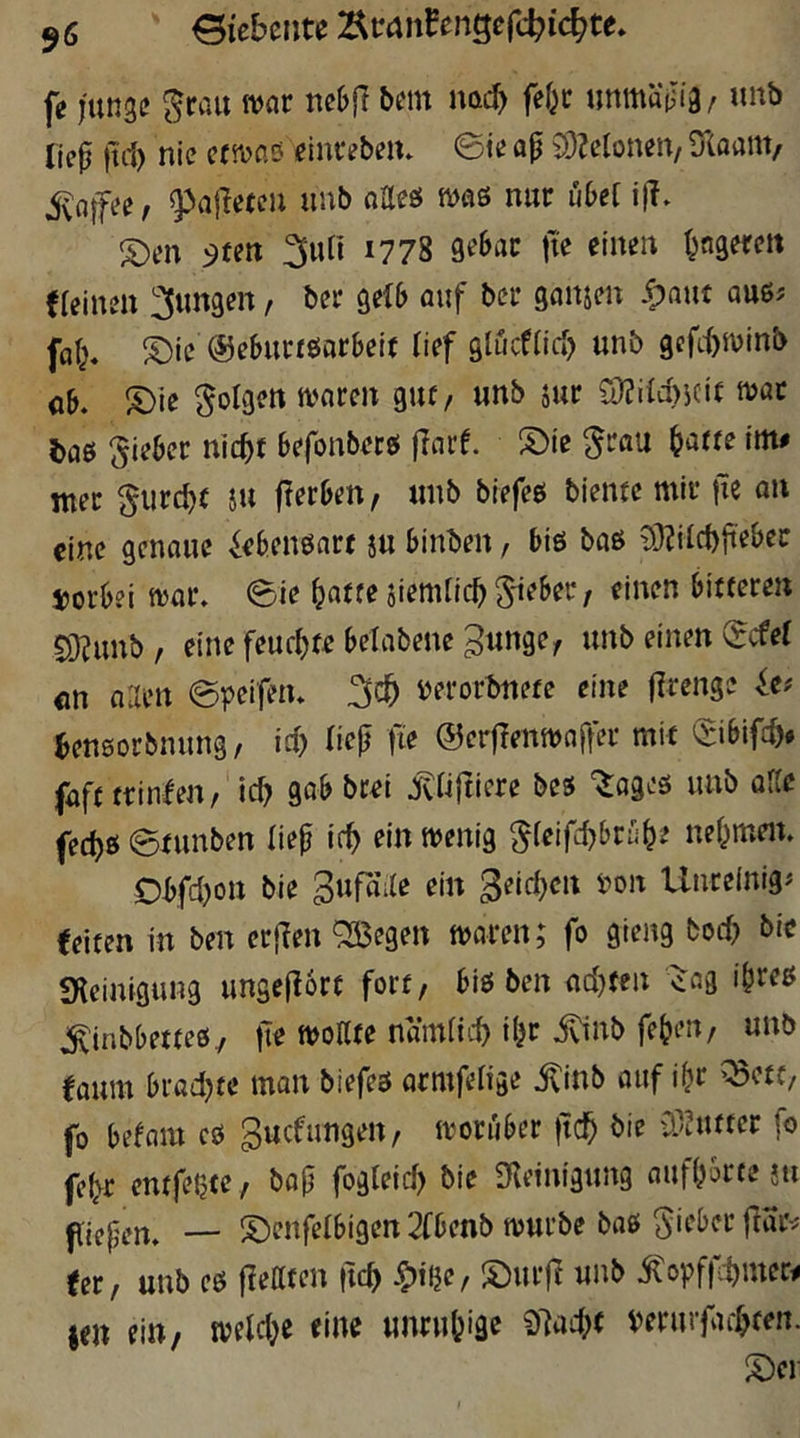 96 Siebente Krankengeschichte.
se junge Frau war nebst dem noch sehr unmäßig, und
ließ sich nie etwas einreden. Sie aß Melonen, Raam,
Kaffee, Pasteten und alles was nur übel ist.
Den 9ten Juli 1778 gebar sie einen hageren
kleinen Jungen, der gelb auf der ganzen Haut aus-
sah. Die Geburtsarbeit lief glücklich und geschwind
ab. Die Folgen waren gut, und zur Milchzeit war
das Fieber nicht besonders stark. Die Frau hatte im-
mer Furcht zu sterben, und dieses diente mir sie an
eine genaue Lebensart zu binden, bis das Milchfieber
vorbei war. Sie hatte ziemlich Fieber, einen bitteren
Mund, eine feuchte beladene Zunge, und einen Eckel
an allen Speisen. Ich verordnete eine strenge Le-
bensordnung, ich ließ sie Gerstenwasser mit Eibisch-
saft trinken, ich gab drei Klistiere des Tages und alle
sechs Stunden ließ ich ein wenig Fleischbrühe nehmen.
Obschon die Zufälle ein Zeichen von Unreinig-
keiten in den ersten Wegen waren; so gieng doch die
Reinigung ungestört fort, bis den achten Tag ihres
Kindbettes, sie wollte nämlich ihr Kind sehen, und
kaum brachte man dieses armselige Kind auf ihr Bett,
so bekam es Zuckungen, worüber sich die Mutter so
sehr entsetzte, daß sogleich die Reinigung aufhörte zu
fließen. — Denselbigen Abend wurde das Fieber stär-
ker, und es stellten sich Hitze, Durst und Kopfschmer-
zen ein, welche eine unruhige Nacht verursachten.
Der